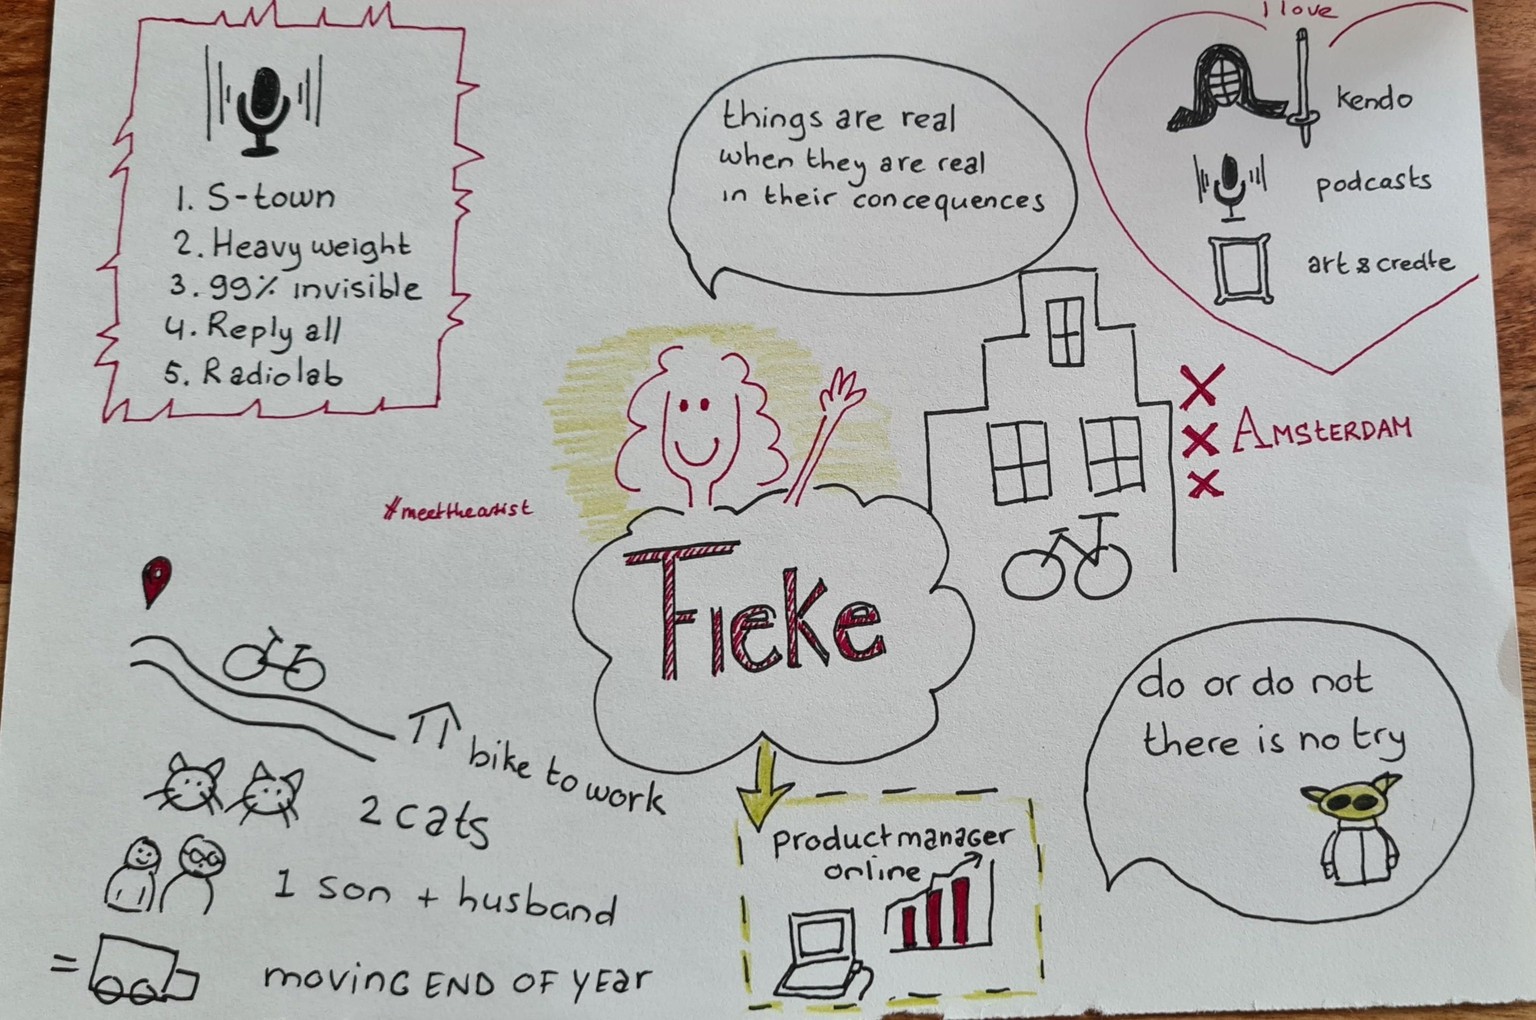 1. S-town
2. Heavy weight
3. 99% invisible
4. Reply all
5. Radiolab
things are real
when they are real
in their concequences
I love
kendo
podcasts
art & create
XXX AMSTERDAM
#meettheartist
FIEKE
bike to work
2 cats
1 son + husband
= moving END OF YEAR
product manager
online
do or do not
there is no try